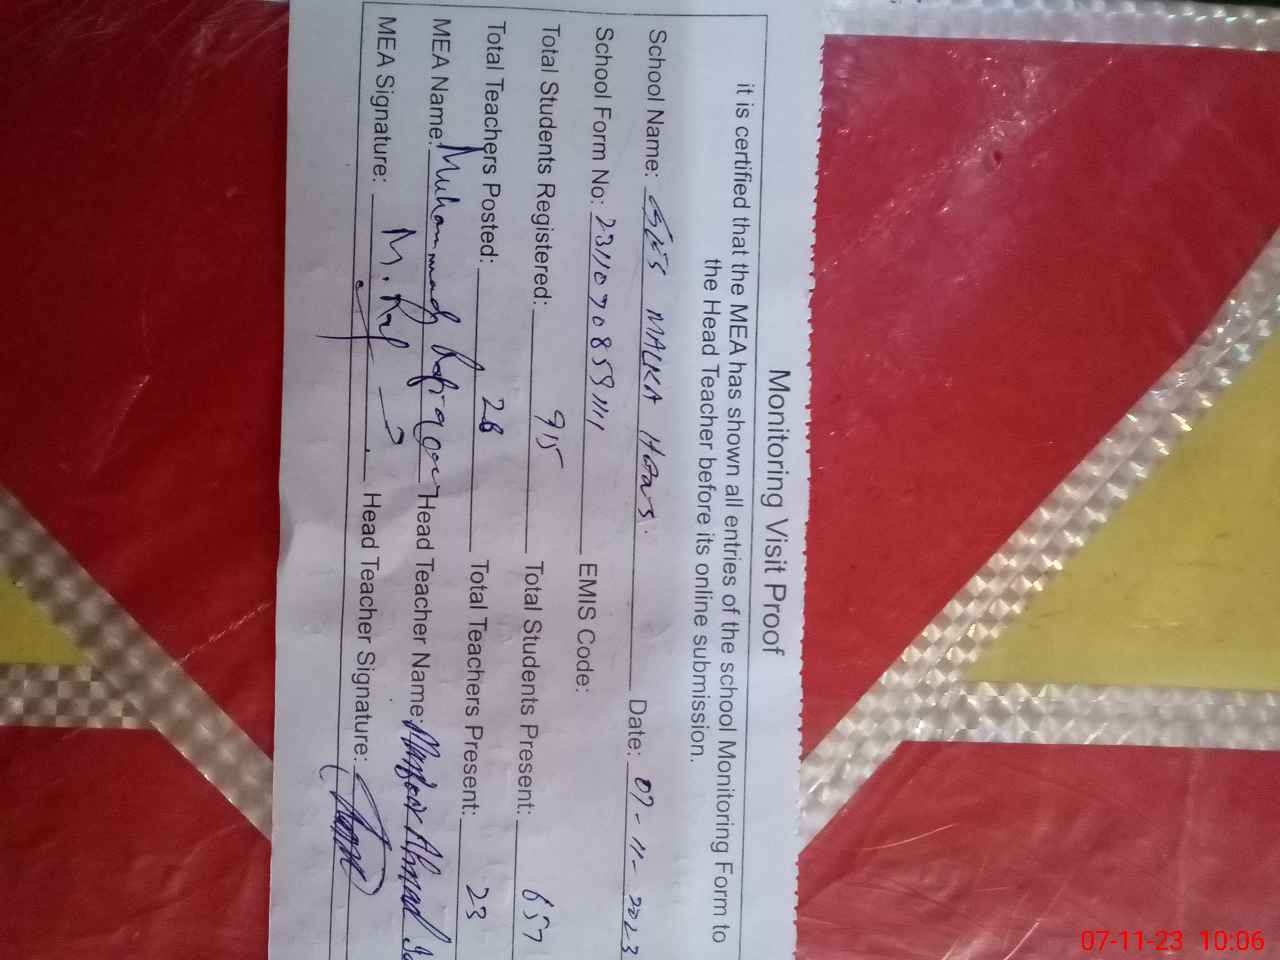 Monitoring Visit Proof
it is certified that the MEA has shown all entries of the school Monitoring Form to
the Head Teacher before its online submission.
School Name: GHS MALKA HANS. Date: 07-11-2023
School Form No: 2311090859111 EMIS Code:
Total Students Registered: 915 Total Students Present: 657
Total Teachers Posted: 26 Total Teachers Present: 23
MEA Name: Muhammad Rafiq Head Teacher Name: Ahmad
MEA Signature: Head Teacher Signature:
07-11-23 10:06